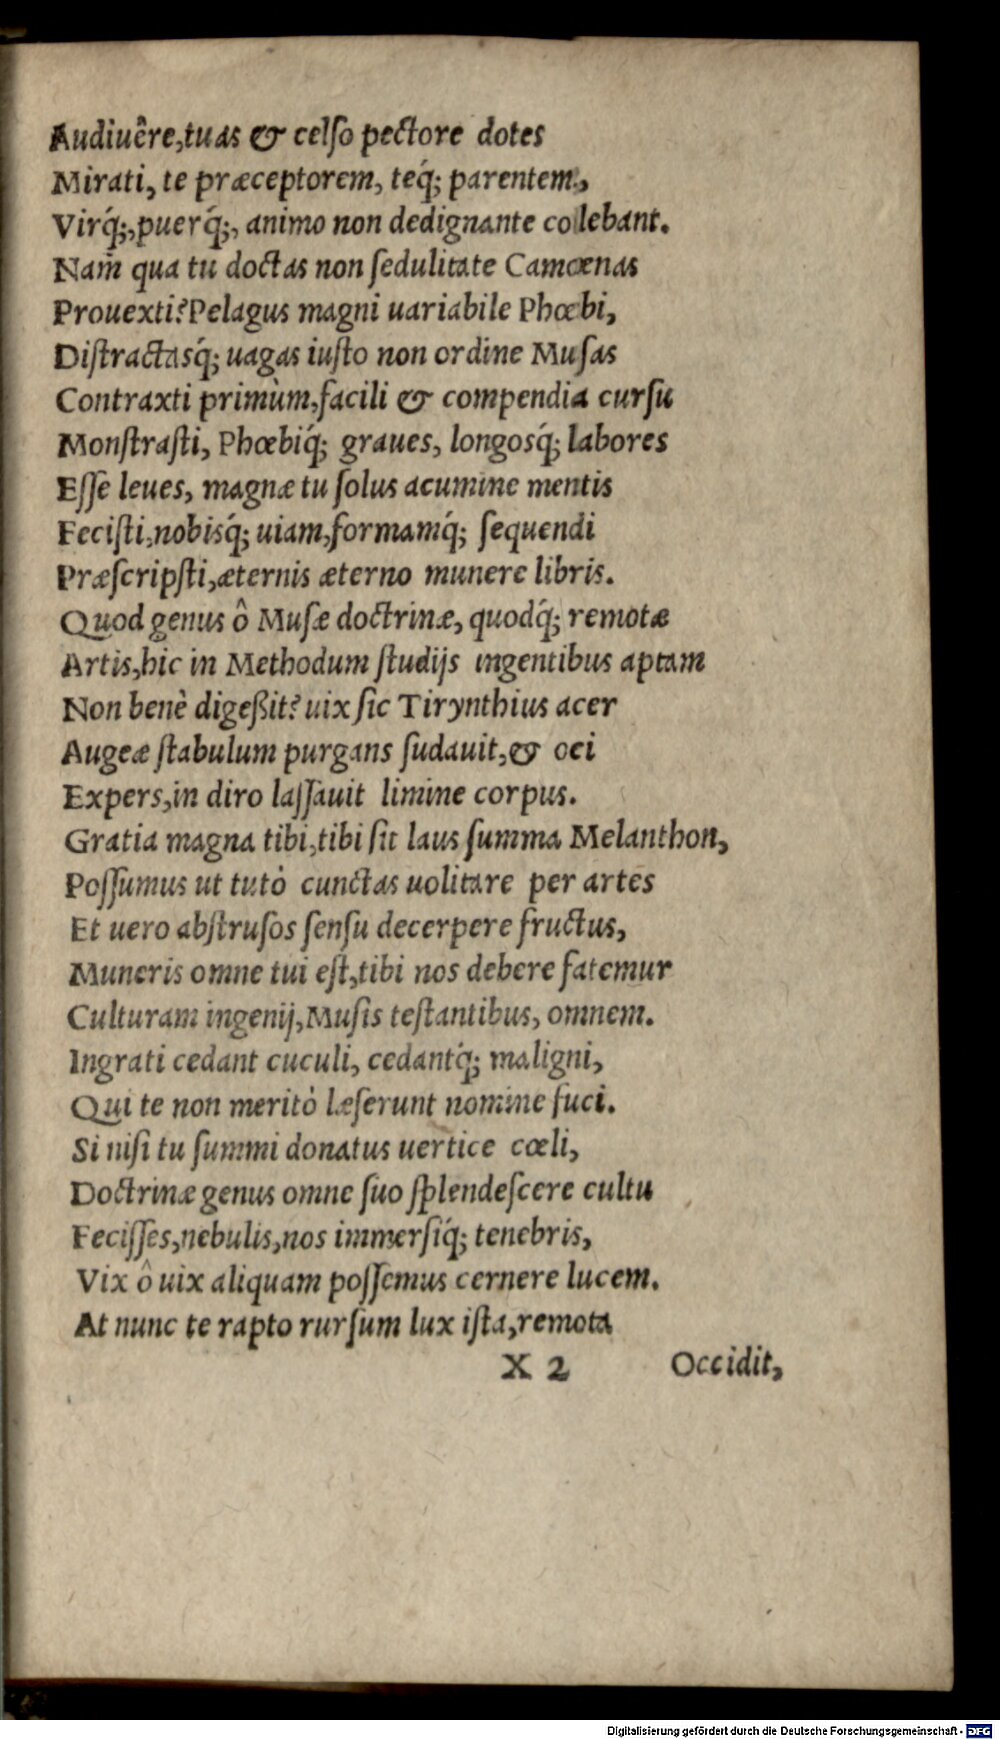 Audiuêre,tuas & celſo pectore dotes
Mirati, te præceptorem, teq́; parentem,
Virq́;,puerq́;, animo non dedignante colebant.
Nam̃ qua tu doctas non ſedulitate Camœnas
Prouexti? Pelagus magni uariabile Phœbi,
Diſtractasq́; uagas iuſto non ordine Muſas
Contraxti primùm,facili & compendia curſu
Monſtraſti, Phœbiq́; graues, longosq́; labores
Eſſe leues, magnæ tu ſolus acumine mentis
Feciſti,nobisq́; uiam,formamq́; ſequendi
Præſcripſti,æternis æterno munere libris.
Quod genus ô Muſæ doctrinæ, quodq́; remotæ
Artis,hic in Methodum ſtudijs ingentibus aptam
Non benè digeßit? uix ſic Tirynthius acer
Augeæ ſtabulum purgans ſudauit,& oci
Expers,in diro laſſauit limine corpus.
Gratia magna tibi,tibi ſit laus ſumma Melanthon,
Poſſumus ut tutò cunctas uolitare per artes
Et uero abſtruſos ſenſu decerpere fructus,
Muneris omne tui eſt,tibi nos debere fatemur
Culturam ingenij,Muſis teſtantibus, omnem.
Ingrati cedant cuculi, cedantq́; maligni,
Qui te non meritò læſerunt nomine fuci.
Si niſi tu ſummi donatus uertice cœli,
Doctrinæ genus omne ſuo ſplendeſcere cultu
Feciſſes,nebulis,nos immerſiq́; tenebris,
Vix ô uix aliquam poſſemus cernere lucem.
At nunc te rapto rurſum lux iſta,remota
X 2 Occidit,
Digitalisierung gefördert durch die Deutsche Forschungsgemeinschaft - DFG